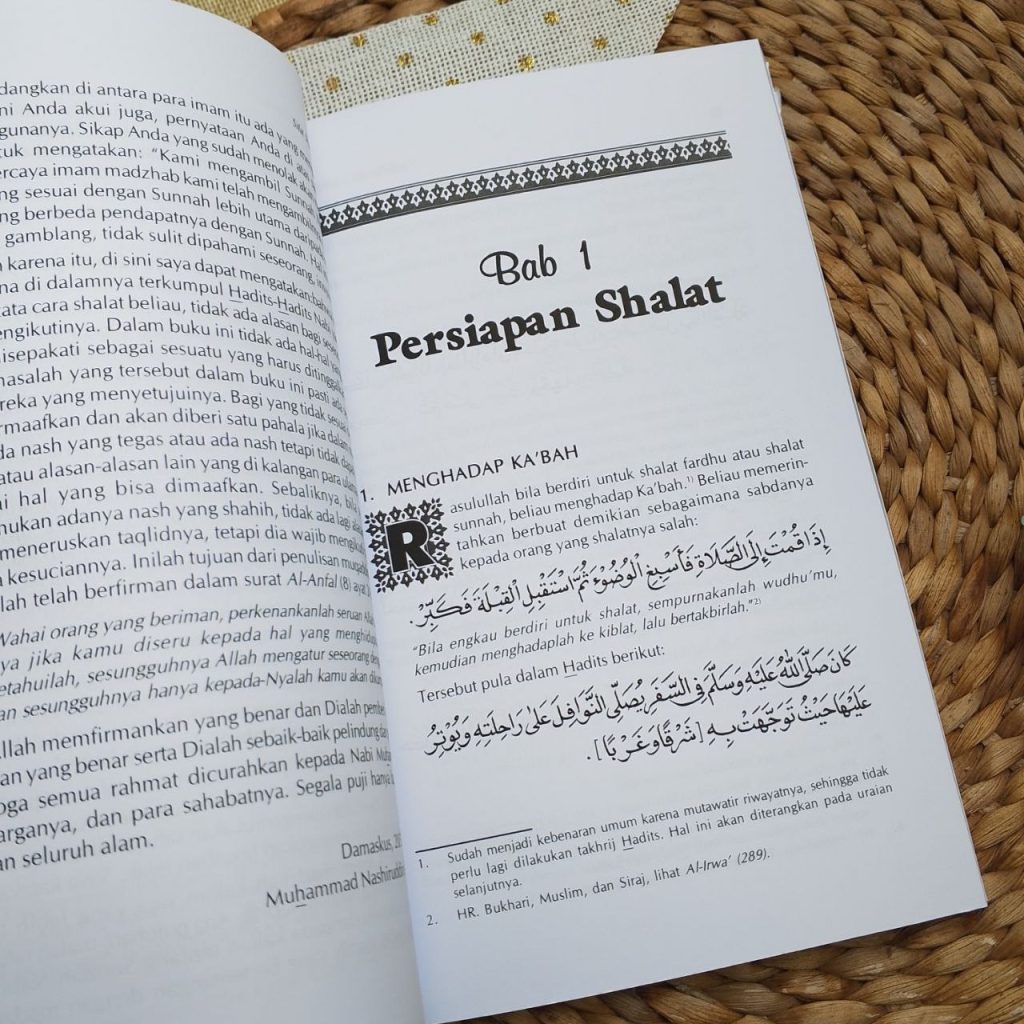 dangkan di antara para imam itu ada yang
ni Anda akui juga, pernyataan Anda di
gunanya. Sikap Anda yang sudah menolak
tuk mengatakan: "Kami mengambil Sunnah
percaya imam madzhab kami telah mengambil
ng sesuai dengan Sunnah lebih utama daripada
ng berbeda pendapatnya dengan Sunnah. Hal
gamblang, tidak sulit dipahami seseorang,
karena itu, di sini saya dapat mengatakan
na di dalamnya terkumpul Hadits-Hadits Nabi
ata cara shalat beliau, tidak ada alasan bagi
engikutinya. Dalam buku ini tidak ada hal-hal
isepakati sebagai sesuatu yang harus
nasalah yang tersebut dalam buku ini pasti ada
ereka yang menyetujuinya. Bagi yang tidak
rmaafkan dan akan diberi satu pahala jika
da nash yang tegas atau ada nash tetapi tidak
atau alasan-alasan lain yang di kalangan para
ai hal yang bisa dimaafkan. Sebaliknya,
nukan adanya nash yang shahih, tidak ada lagi
meneruskan taqlidnya, tetapi dia wajib
kesuciannya. Inilah tujuan dari penulisan
lah telah berfirman dalam surat Al-Anfal (8)
Wahai orang yang beriman, perkenankanlah seruan
ya jika kamu diseru kepada hal yang
etahuilah, sesungguhnya Allah mengatur seseorang
an sesungguhnya hanya kepada-Nyalah kamu akan
llah memfirmankan yang benar dan Dialah
an yang benar serta Dialah sebaik-baik pelindung
oga semua rahmat dicurahkan kepada Nabi
arganya, dan para sahabatnya. Segala puji hanya
an seluruh alam.
Damaskus,
Muhammad Nashiruddin
Bab 1
Persiapan Shalat
1. MENGHADAP KA'BAH
Rasulullah bila berdiri untuk shalat fardhu atau shalat
sunnah, beliau menghadap Ka'bah.1) Beliau memerin-
tahkan berbuat demikian sebagaimana sabdanya
kepada orang yang shalatnya salah:
إِذَا قُمْتَ إِلَى الصَّلَاةِ فَأَسْبِغِ الْوُضُوْءَ ثُمَّ اسْتَقْبِلِ الْقِبْلَةَ فَكَبِّرْ.
"Bila engkau berdiri untuk shalat, sempurnakanlah wudhu'mu,
kemudian menghadaplah ke kiblat, lalu bertakbirlah."2)
Tersebut pula dalam Hadits berikut:
كَانَ صَلَّى اللهُ عَلَيْهِ وَسَلَّمَ فِي السَّفَرِ يُصَلِّي النَّوَافِلَ عَلَى رَاحِلَتِهِ وَيُوْتِرُ
عَلَيْهَا حَيْثُ تَوَجَّهَتْ بِهِ [شَرْقًا وَغَرْبًا].
1. Sudah menjadi kebenaran umum karena mutawatir riwayatnya, sehingga tidak
perlu lagi dilakukan takhrij Hadits. Hal ini akan diterangkan pada uraian
selanjutnya.
2. HR. Bukhari, Muslim, dan Siraj, lihat Al-Irwa' (289).